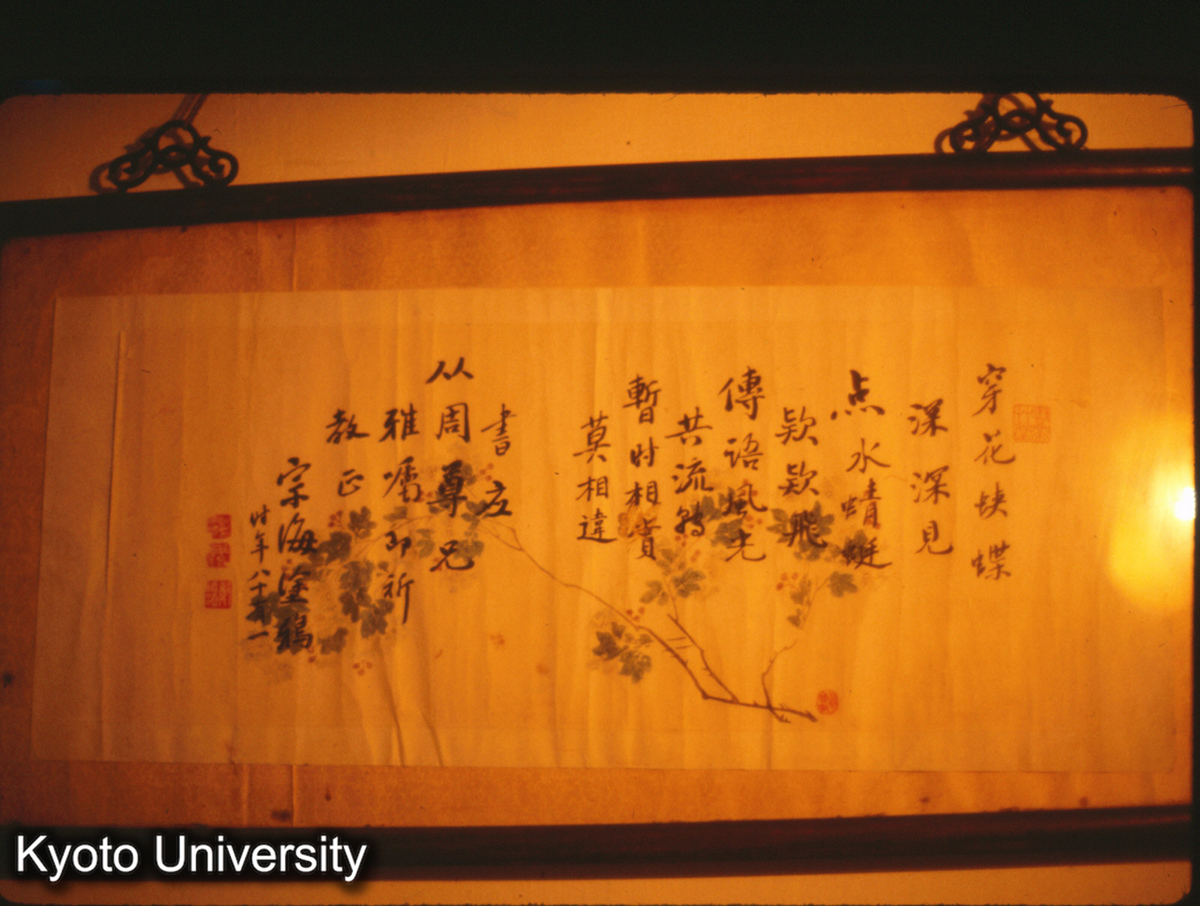 穿花蛱蝶
深深見
点水蜻蜓
欵欵飛
傳語風光
共流轉
暫时相賞
莫相違
書应
从周尊兄
雅囑即祈
教正
宗海塗鴉
时年八十有一
Kyoto University